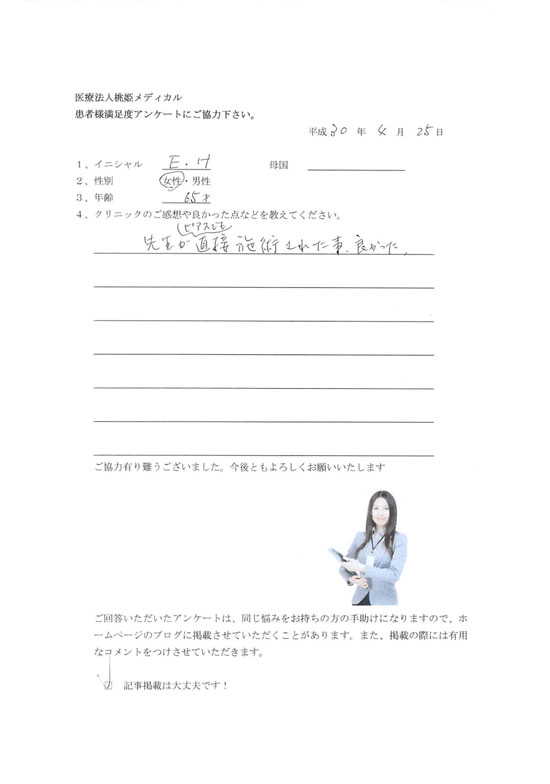 医療法人桃姫メディカル
患者様満足度アンケートにご協力下さい。
平成 30 年 4 月 25 日
1、イニシャル E・H 母国
2、性別 女性・男性
3、年齢 65才
4、クリニックのご感想や良かった点などを教えてください。
ピアスでも
先生が直接施術された事、良かった。
ご協力有り難うございました。今後ともよろしくお願いいたします
ご回答いただいたアンケートは、同じ悩みをお持ちの方の手助けになりますので、ホ
ームページのブログに掲載させていただくことがあります。また、掲載の際には有用
なコメントをつけさせていただきます。
☑ 記事掲載は大丈夫です！